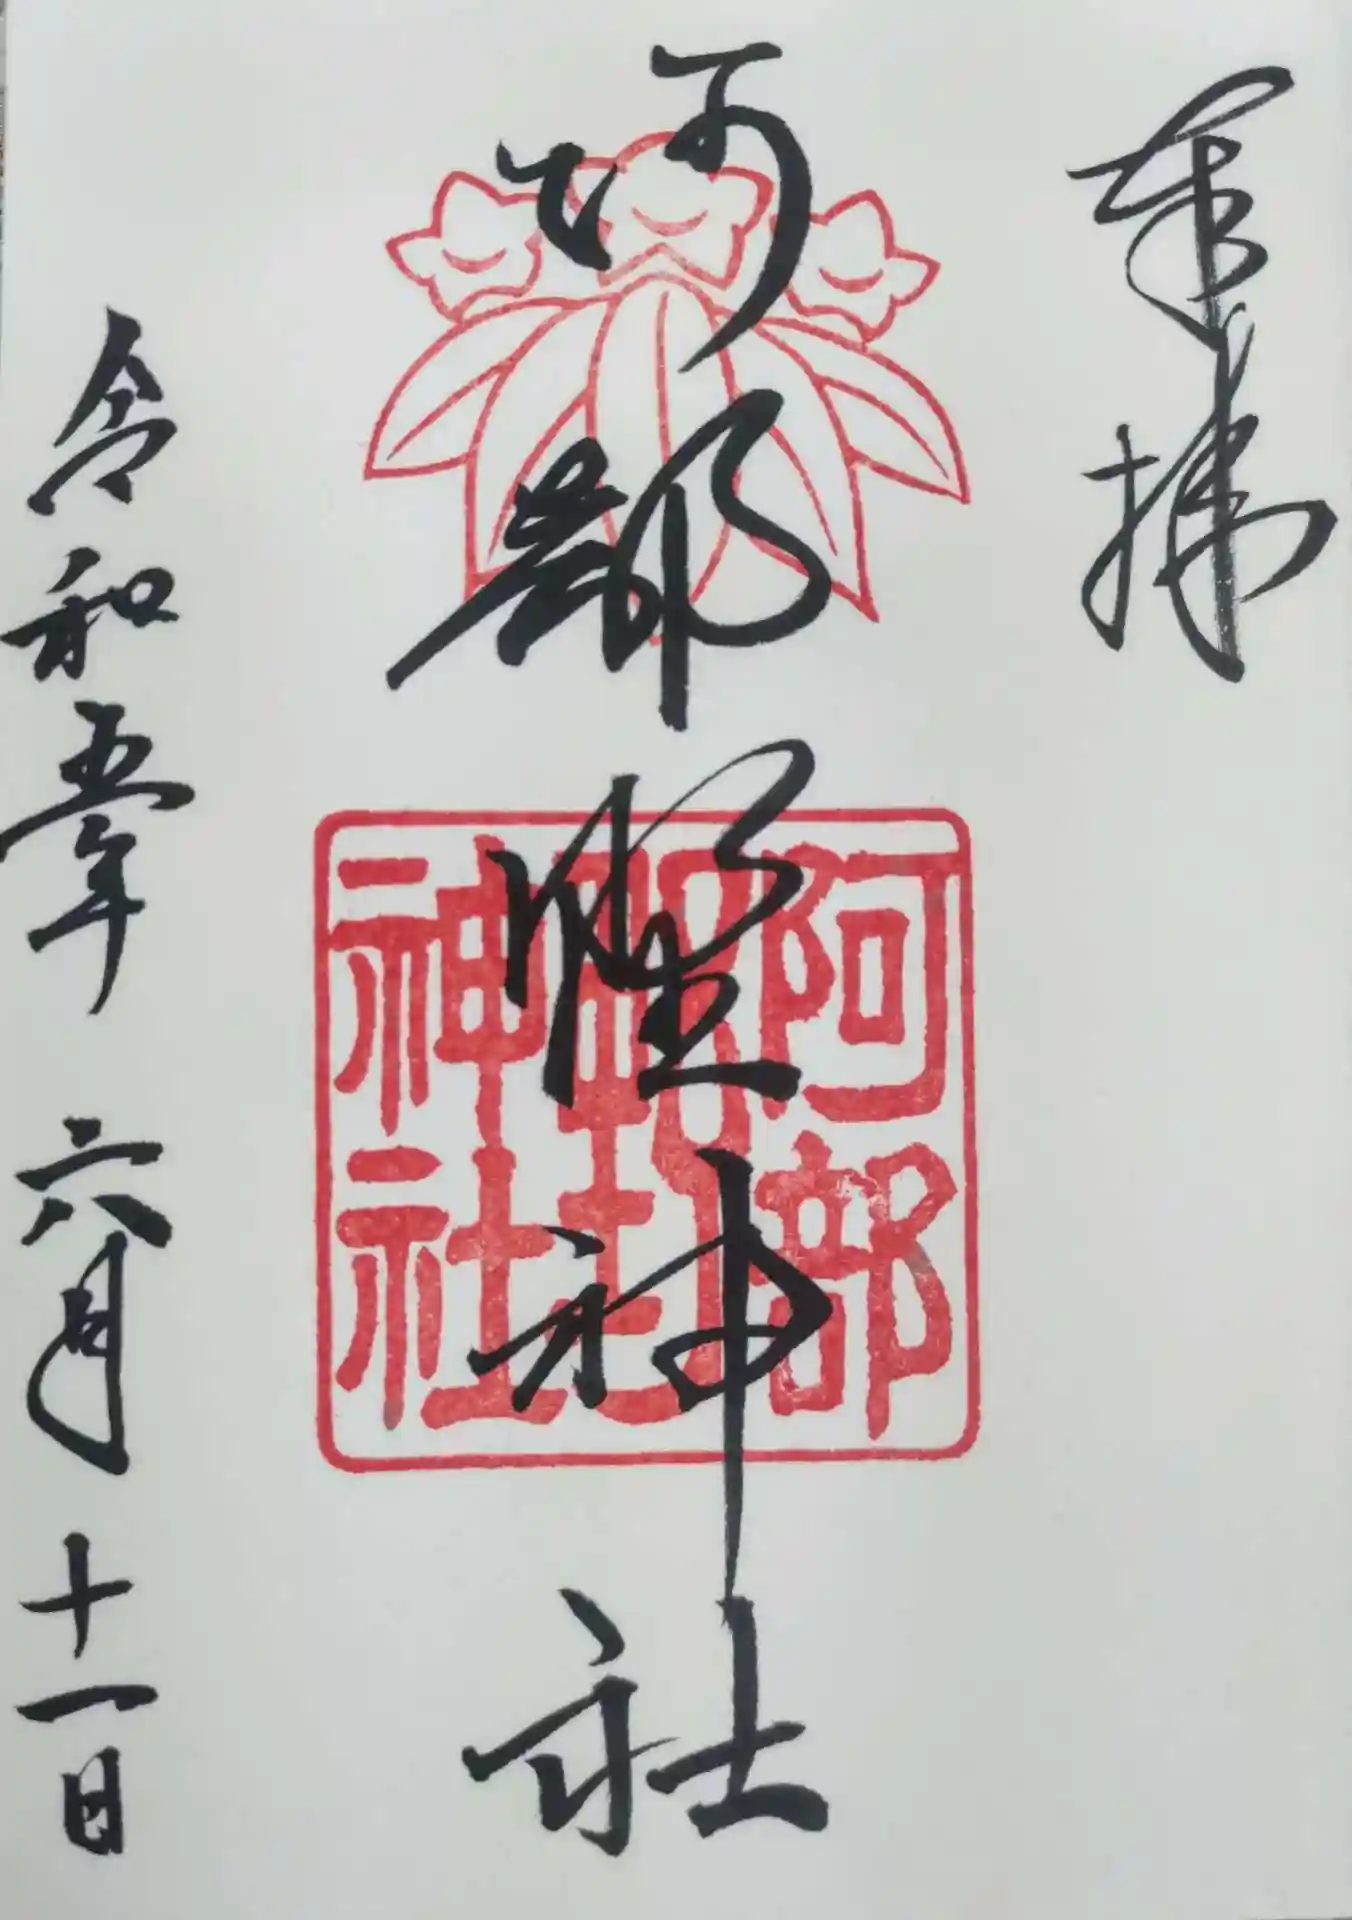 奉拝
阿部野神社
阿部
野
神社
令和五年六月十一日